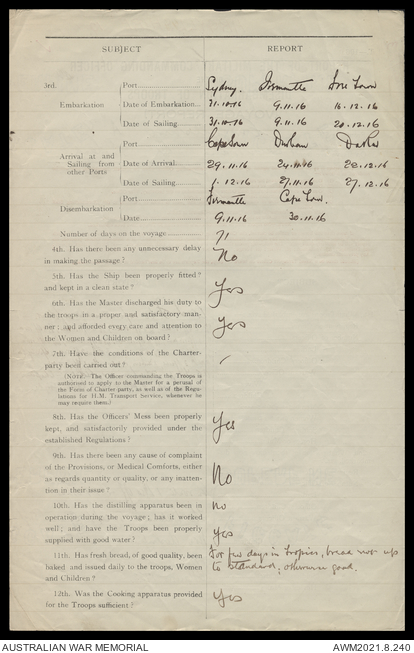 SUBJECT REPORT
3rd. Port Sydney. Fremantle Free Town
Embarkation Date of Embarkation 31.10.16 9.11.16 16.12.16
Date of Sailing 31.10.16 9.11.16 20.12.16
Port Cape Town Durban Dakar
Arrival at and Sailing from other Ports Date of Arrival 29.11.16 24.11.16 22.12.16
Date of Sailing 1.12.16 27.11.16 27.12.16
Port Fremantle Cape Town.
Disembarkation
Date 9.11.16 30.11.16
Number of days on the voyage 71
4th. Has there been any unnecessary delay No
in making the passage?
5th. Has the Ship been properly fitted? Yes
and kept in a clean state?
6th. Has the Master discharged his duty to
the troops in a proper and satisfactory man- Yes
ner; and afforded every care and attention to
the Women and Children on board?
7th. Have the conditions of the Charter-
party been carried out?
(NOTE.—The Officer commanding the Troops is
authorised to apply to the Master for a perusal of
the Form of Charter-party, as well as of the Regu-
lations for H.M. Transport Service, whenever he
may require them.)
8th. Has the Officers' Mess been properly Yes
kept, and satisfactorily provided under the
established Regulations?
9th. Has there been any cause of complaint
of the Provisions, or Medical Comforts, either No
as regards quantity or quality, or any inatten-
tion in their issue?
10th. Has the distilling apparatus been in no
operation during the voyage; has it worked
well; and have the Troops been properly Yes
supplied with good water?
11th. Has fresh bread, of good quality, been For few days in tropics, bread not up
baked and issued daily to the troops, Women to standard; otherwise good.
and Children?
12th. Was the Cooking apparatus provided Yes
for the Troops sufficient?
AUSTRALIAN WAR MEMORIAL AWM2021.8.240